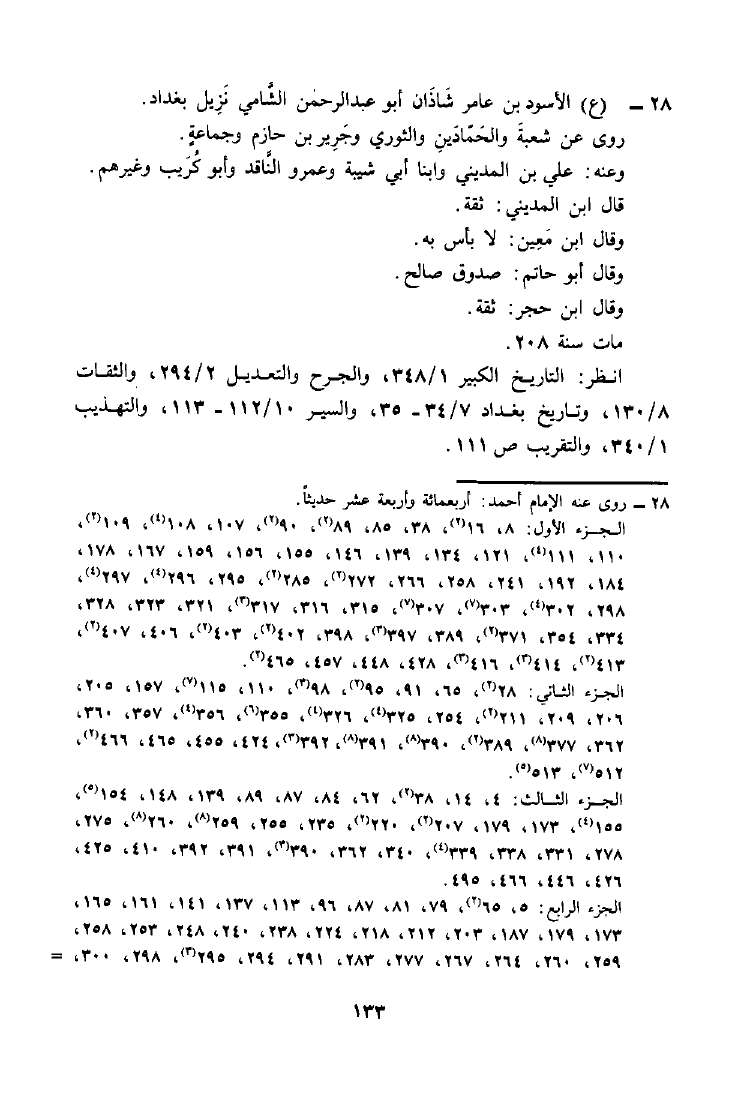 ٢٨ – (ع) الأسود بن عامر شَاذَان أبو عبدالرحمٰن الشَّامي نَزِيل بغداد.
روى عن شعبةَ والحَمّادَينِ والثوري وجَرِير بن حازم وجماعةٍ.
وعنه: علي بن المديني وابنا أبي شيبة وعمرو النَّاقد وأبو كُرَيب وغيرهم.
قال ابن المديني: ثقة.
وقال ابن مَعِين: لا بأس به.
وقال أبو حاتم: صدوق صالح.
وقال ابن حجر: ثقة.
مات سنة ٢٠٨.
انـظر: التاريـخ الكبير ٣٤٨/١، والجـرح والتعـديـل ٢٩٤/٢، والثقـات
١٣٠/٨، وتـاريخ بغـداد ٣٤/٧ ـ ٣٥، والسير ١١٢/١٠ ـ ١١٣، والتهـذيب
٣٤٠/١، والتقريب ص ١١١.
٢٨ – روى عنه الإمام أحمد: أربعمائة وأربعة عشر حديثاً.
الجـزء الأول: ٨، ١٦(٢)، ٣٨، ٨٥، ٨٩(٢)، ٩٠(٢)، ١٠٧، ١٠٨(٤)، ١٠٩(٢)،
١١٠، ١١١(٤)، ١٢١، ١٣٤، ١٣٩، ١٤٦، ١٥٥، ١٥٦، ١٥٩، ١٦٧، ١٧٨،
١٨٤، ١٩٢، ٢٤١، ٢٥٨، ٢٦٦، ٢٧٢(٢)، ٢٨٥(٢)، ٢٩٥، ٢٩٦(٤)، ٢٩٧(٤)،
٢٩٨، ٣٠٢(٤)، ٣٠٣(٧)، ٣٠٧(٧)، ٣١٥، ٣١٦، ٣١٧(٣)، ٣٢١، ٣٢٣، ٣٢٨،
٣٣٤، ٣٥٤، ٣٧١(٢)، ٣٨٩، ٣٩٧(٣)، ٣٩٨، ٤٠٢(٢)، ٤٠٣(٢)، ٤٠٦، ٤٠٧(٢)،
٤١٣(٢)، ٤١٤(٣)، ٤١٦(٣)، ٤٢٨، ٤٤٨، ٤٥٧، ٤٦٥(٢).
الجزء الثاني: ٢٨(٢)، ٦٥، ٩١، ٩٥(٢)، ٩٨(٣)، ١١٠، ١١٥(٧)، ١٥٧، ٢٠٥،
٢٠٦، ٢٠٩، ٢١١(٢)، ٢٥٤، ٣٢٥(٤)، ٣٢٦(٤)، ٣٥٥(٦)، ٣٥٦(٤)، ٣٥٧، ٣٦٠،
٣٦٢، ٣٧٧(٨)، ٣٨٩(٢)، ٣٩٠(٨)، ٣٩١(٨)، ٣٩٢(٣)، ٤٢٤، ٤٥٥، ٤٦٥، ٤٦٦(٢)،
٥١٢(٧)، ٥١٣(٥).
الجـزء الثـالث: ٤، ١٤، ٣٨(٢)، ٦٢، ٨٤، ٨٧، ٨٩، ١٣٩، ١٤٨، ١٥٤(٥)،
١٥٥(٤)، ١٧٣، ١٧٩، ٢٠٧(٢)، ٢٢٠(٢)، ٢٣٥، ٢٥٥، ٢٥٩(٨)، ٢٦٠(٨)، ٢٧٥،
٢٧٨، ٣٣١، ٣٣٨، ٣٣٩(٤)، ٣٤٠، ٣٦٢، ٣٩٠(٣)، ٣٩١، ٣٩٢، ٤١٠، ٤٢٥،
٤٢٦، ٤٤٦، ٤٦٦، ٤٩٥.
الجزء الرابع: ٥، ٦٥(٢)، ٧٩، ٨١، ٨٧، ٩٦، ١١٣، ١٣٧، ١٤١، ١٦١، ١٦٥،
١٧٣، ١٧٩، ١٨٧، ٢٠٣، ٢١٢، ٢١٨، ٢٢٤، ٢٣٨، ٢٤٠، ٢٤٨، ٢٥٣، ٢٥٨،
٢٥٩، ٢٦٠، ٢٦٤، ٢٦٧، ٢٧٧، ٢٨٣، ٢٩١، ٢٩٤، ٢٩٥(٣)، ٢٩٨، ٣٠٠، =
١٣٣